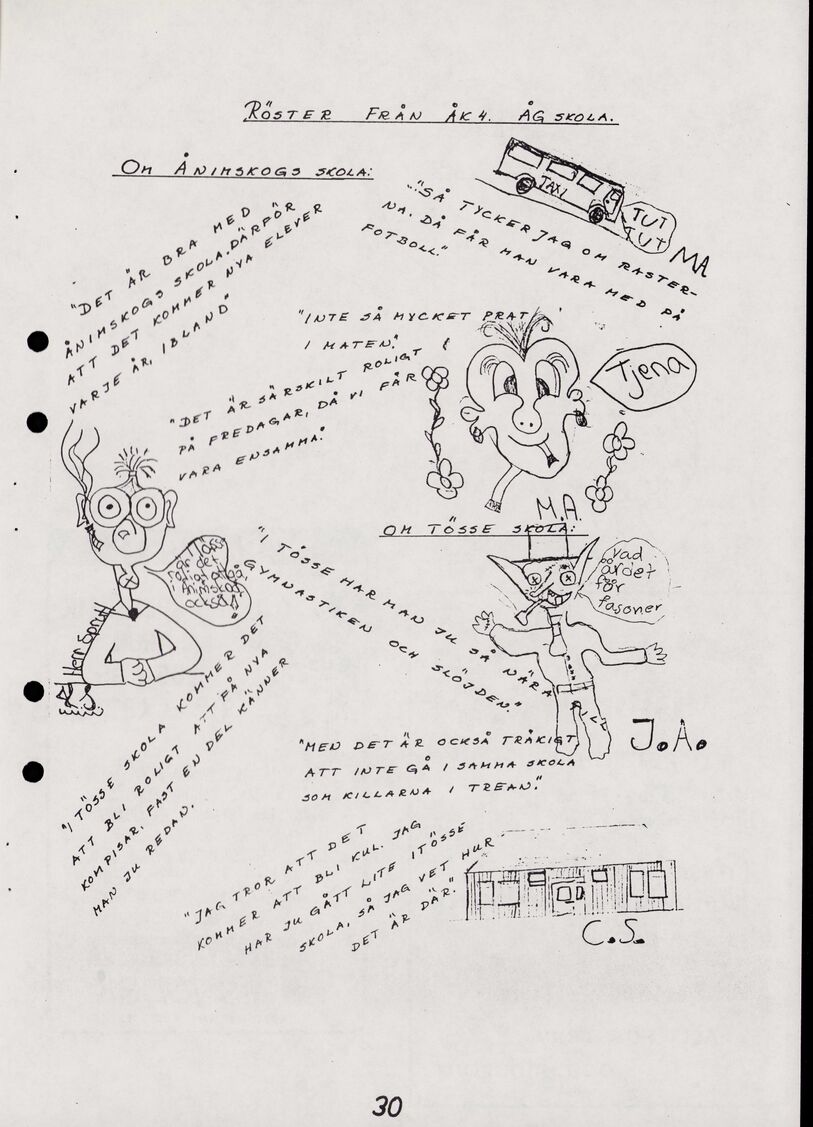 RÖSTER FRÅN ÅK 4. ÅG SKOLA.
OM ÅNIMSKOGS SKOLA:
"DET ÄR BRA MED
ÅNIMSKOGS SKOLA. DÄRFÖR
ATT DET KOMMER NYA ELEVER
VARJE ÅR, IBLAND"
TAXI
TUT
TUT
MA
"SÅ TYCKER JAG OM RASTER-
NA. DÅ FÅR MAN VARA MED PÅ
FOTBOLL."
"INTE SÅ MYCKET PRAT
I MATEN."
Tjena
"DET ÄR SÄRSKILT ROLIGT
PÅ FREDAGAR, DÅ VI FÅR
VARA ENSAMMA."
M.A
Herr Sprutt
är det
också
OM TÖSSE SKOLA:
"I TÖSSE HAR MAN JU SÅ NÄRA
GYMNASTIKEN OCH SLÖJDEN."
vad
är det
för
fasoner
J.A.
"I TÖSSE SKOLA KOMMER DET
ATT BLI ROLIGT ATT FÅ NYA
KOMPISAR, FAST EN DEL KÄNNER
MAN JU REDAN.
"MEN DET ÄR OCKSÅ TRÅKIGT
ATT INTE GÅ I SAMMA SKOLA
SOM KILLARNA I TREAN."
"JAG TROR ATT DET
KOMMER ATT BLI KUL. JAG
HAR JU GÅTT LITE I TÖSSE
SKOLA, SÅ JAG VET HUR
DET ÄR DÄR."
C.S.
30